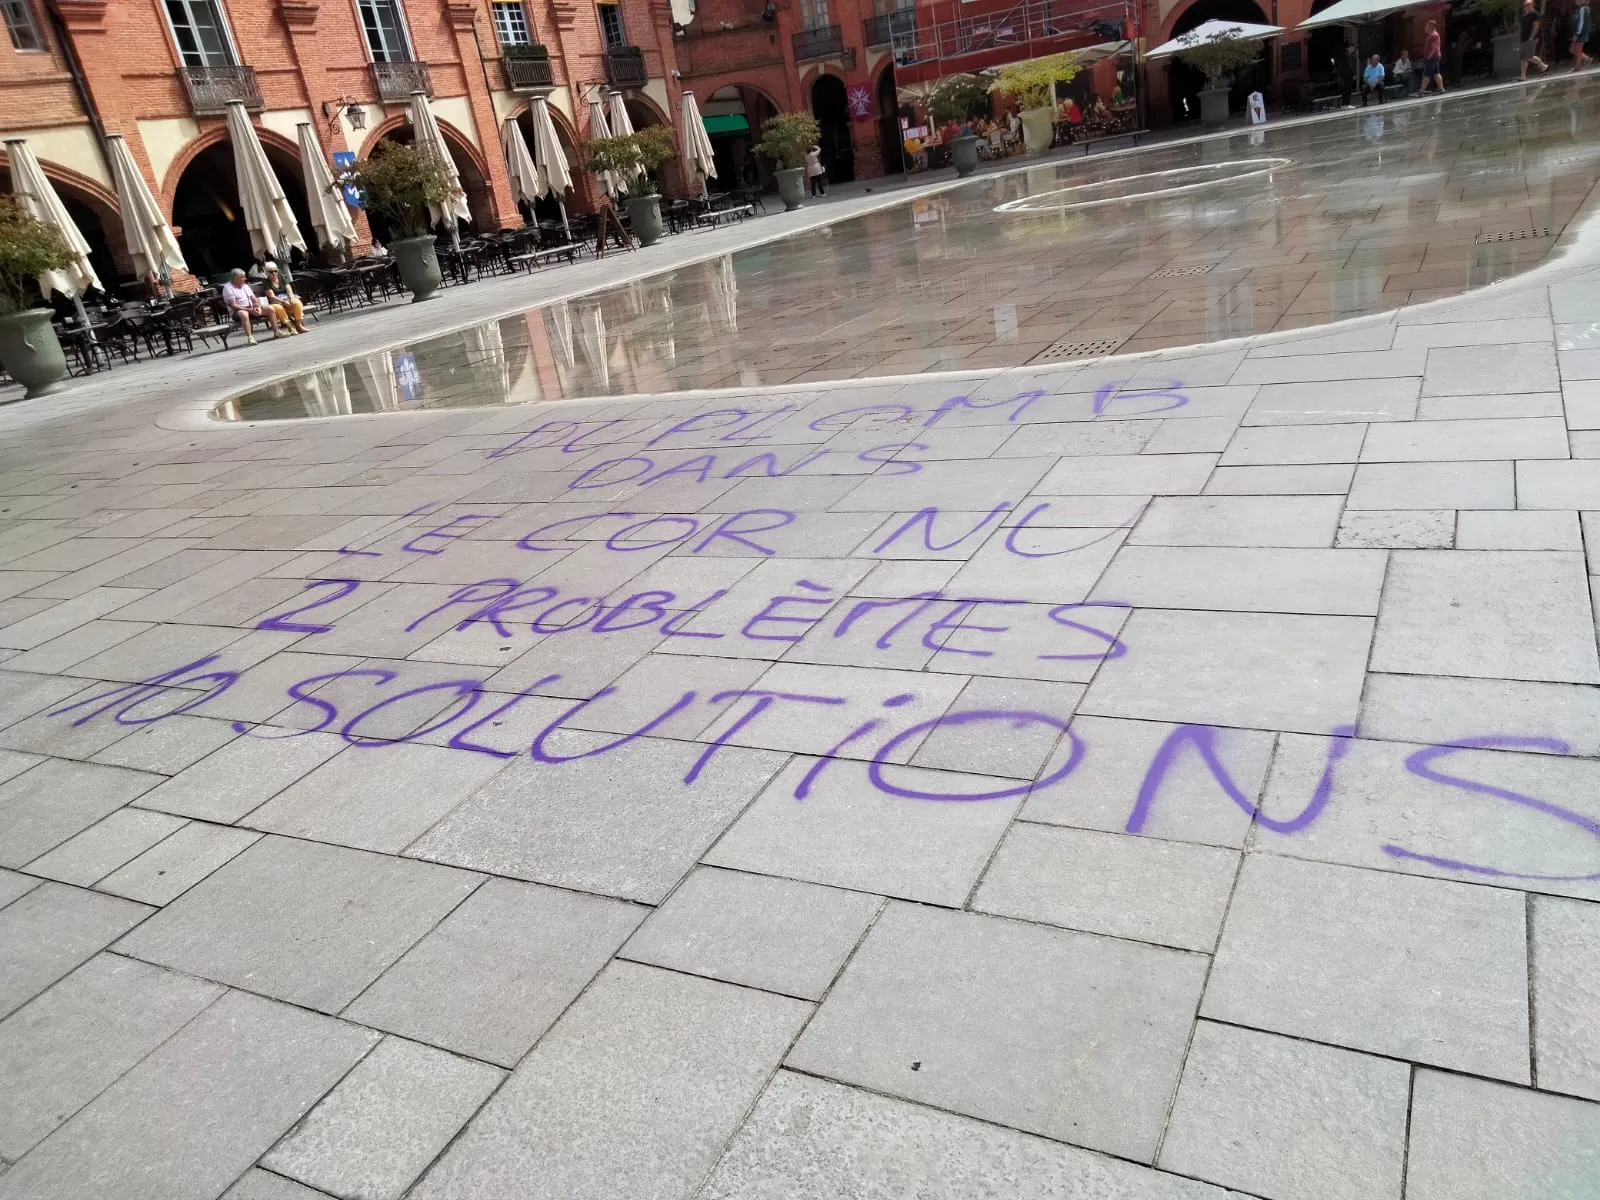 DUPLOMB
DANS
LE COR NU
2 PROBLÈMES
10 SOLUTIONS